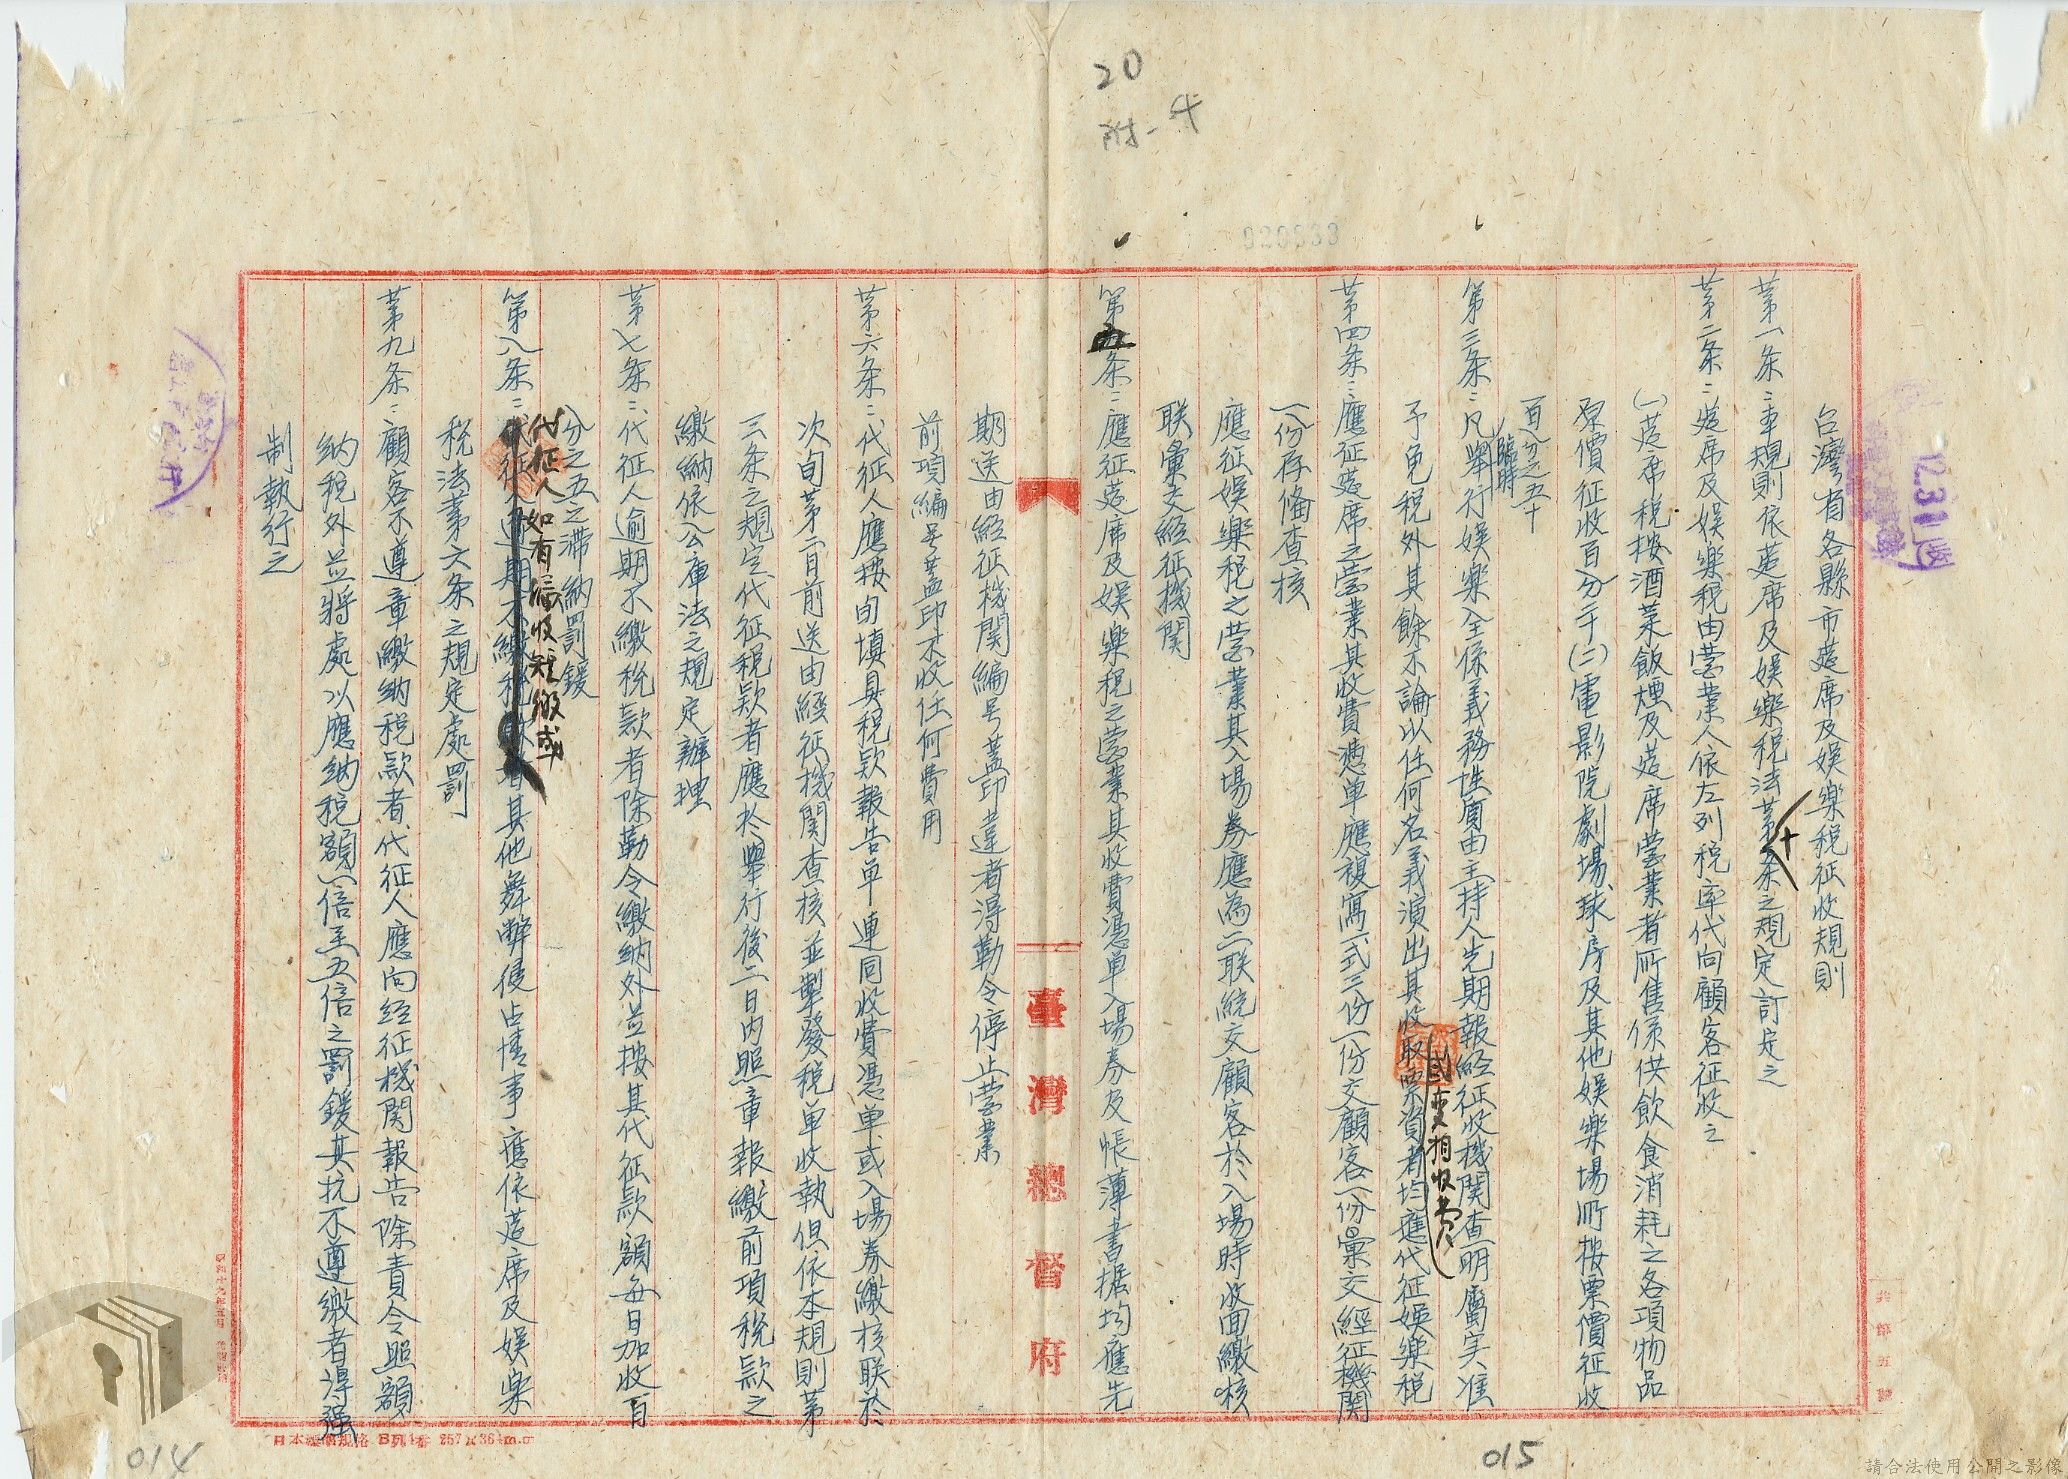 20
附-4
020633
12.31.
台灣省各縣市筵席及娛樂税征收規則
第一条：本規則依筵席及娛樂税法第十条之規定訂定之
第二条：筵席及娛樂税由营業人依左列税率代向顧客征收之
(一)筵席税按酒菜飯煙及筵席营業者所售係供飲食消耗之各項物品
原價征收百分二十(二)電影院劇場球房及其他娛樂場所按票價征收
百分之五十
第三条：凡臨時舉行娛樂全係義務性質由主持人先期報經征收機関查明屬实准
予免税外其餘不論以任何名義演出其收取票資者均應代征娛樂税
國变相收费
第四条：應征筵席之营業其收費憑单應複寫一式三份一份交顧客一份彙交經征機関
一份存備查核
應征娛樂税之营業其入場券應為二联統交顧客於入場時收回繳核
联彙交經征機関
第五条：應征筵席及娛樂税之营業其收費憑单入場券及帳薄書据均應先
期送由經征機関編号蓋印違者得勒令停止营業
前項編号蓋印不收任何費用
第六条：代征人應按旬填具税欵報告单連同收費憑单或入場券繳核联於
次旬第二日前送由經征機関查核並掣發税单收執但依本規則第
三条之規定代征税欵者應於舉行後二日内照章報繳前項税欵之
繳納依公庫法之規定辦理
第七条：代征人逾期不繳税款者除勒令繳納外並按其代征款額每日加收百
分之五之滯納罰鍰
第八条：代征人如有漏收短繳或其他舞弊侵占情事應依筵席及娛樂
税法第六条之規定處罰
第九条：顧客不遵章繳納税款者代征人應向经征機関報告除責令照額
納税外並將處以應納税額一倍至五倍之罰鍰其抗不遵繳者得强
制執行之
臺灣總督府
日本標準規格 B列4番 257×364m.m
014
015
請合法使用公開之影像